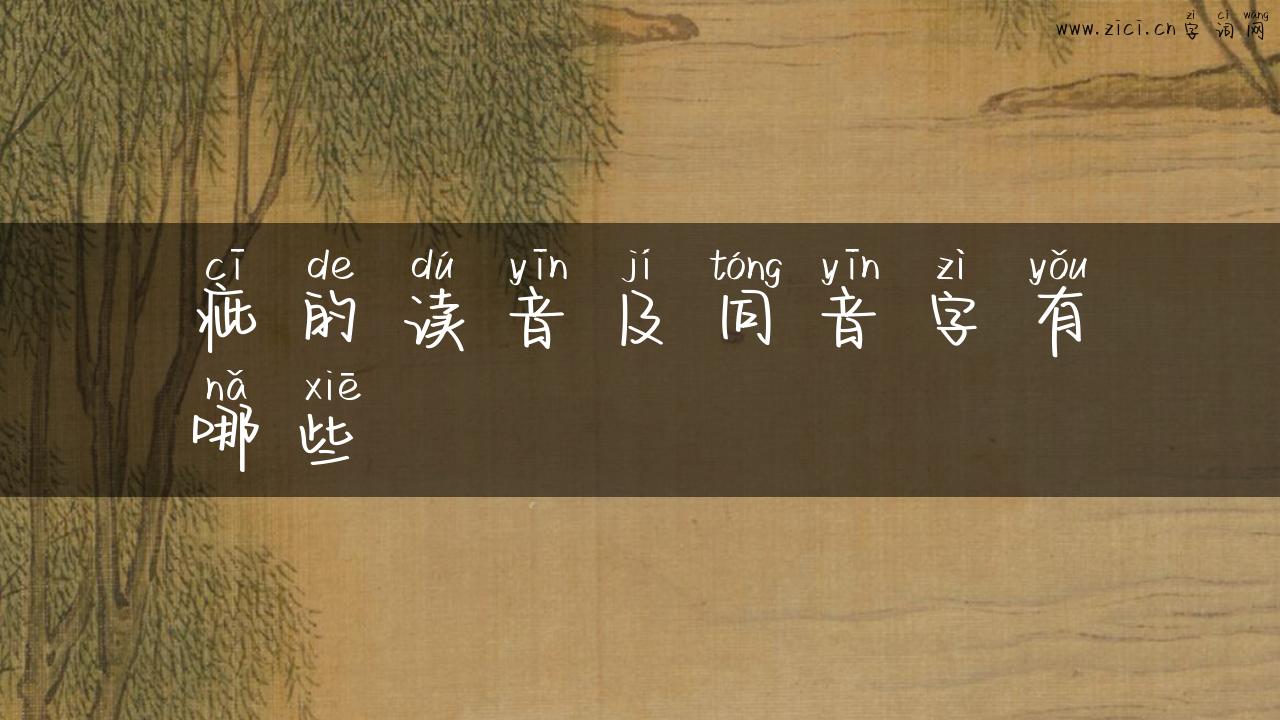 zì cí wǎng
www.zici.cn 字词网
cī de dú yīn jí tóng yīn zì yǒu
疵的读音及同音字有
nǎ xiē
哪些